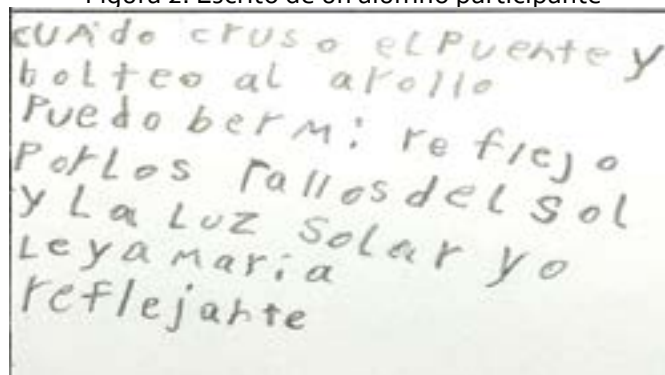 Figura 2. Escrito de un alumno participante
cuAdo cruso el Puente y
bolteo al arollo
Puedo ber mi reflejo
Por Los rallos del sol
y La Luz solar yo
Le yamaria
reflejante